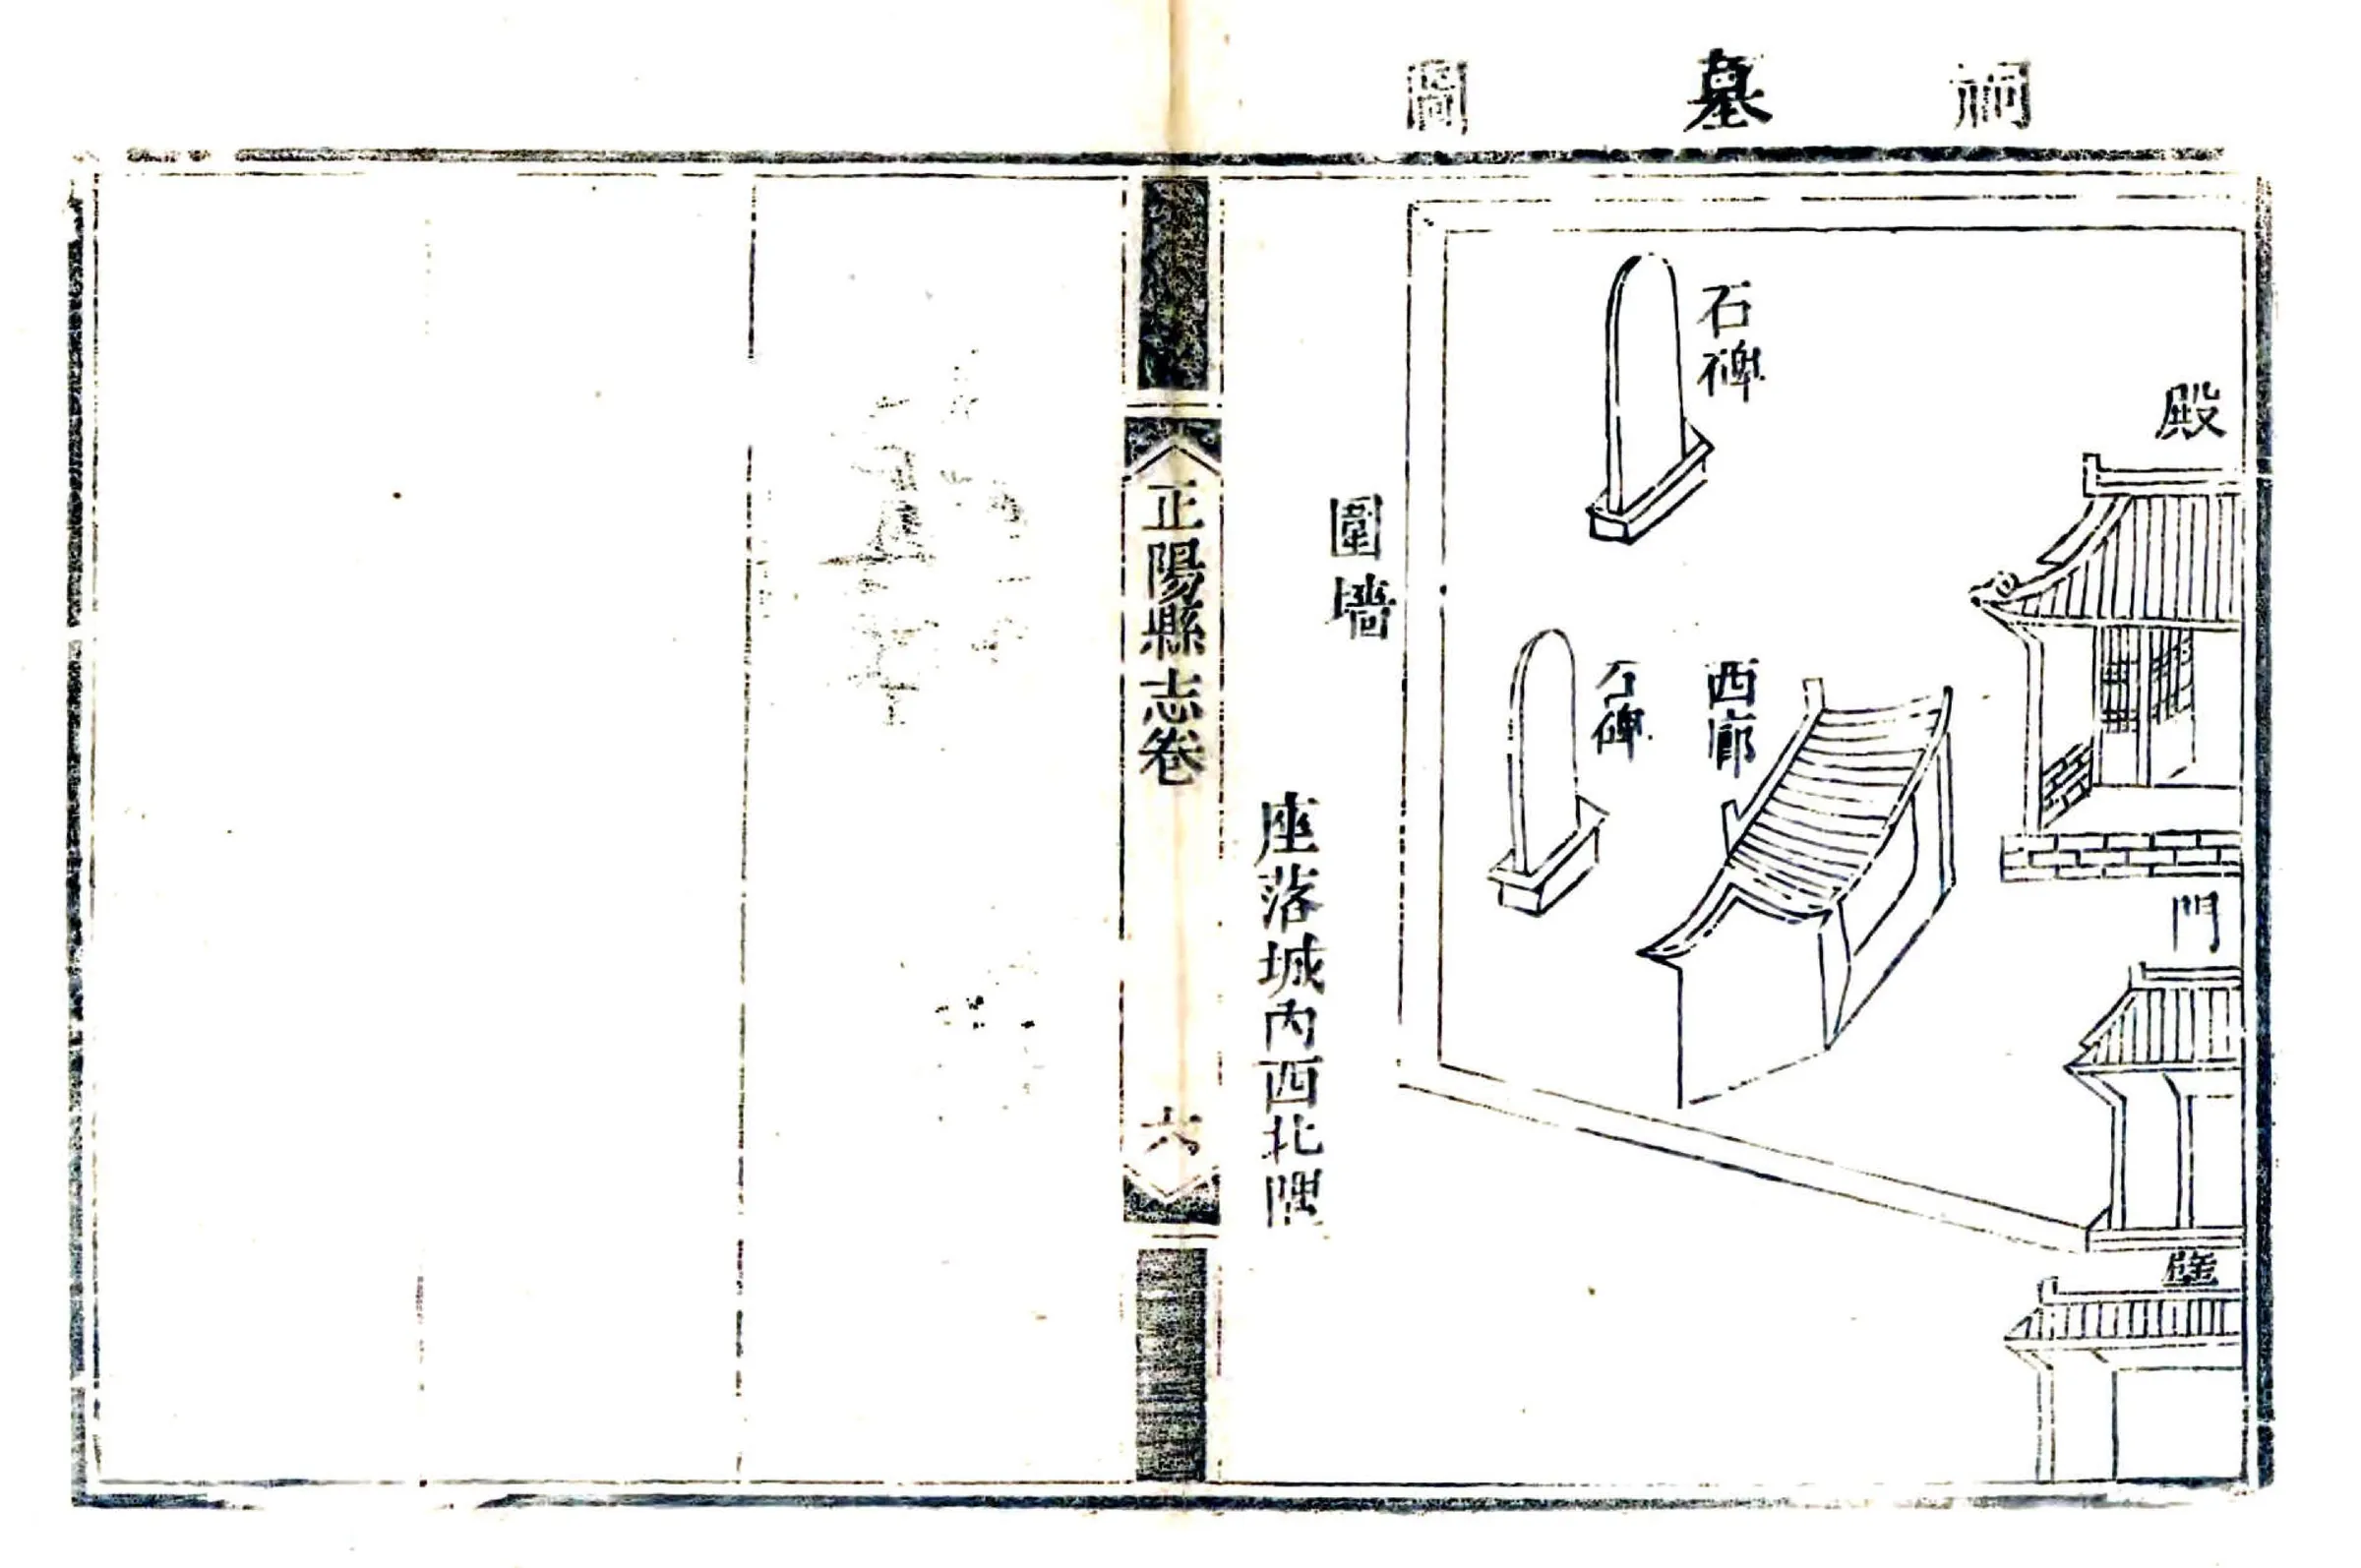 祠墓圖
殿
門
壁
石碑
西廊
石碑
圍墻
座落城內西北隅
正陽縣志卷
六